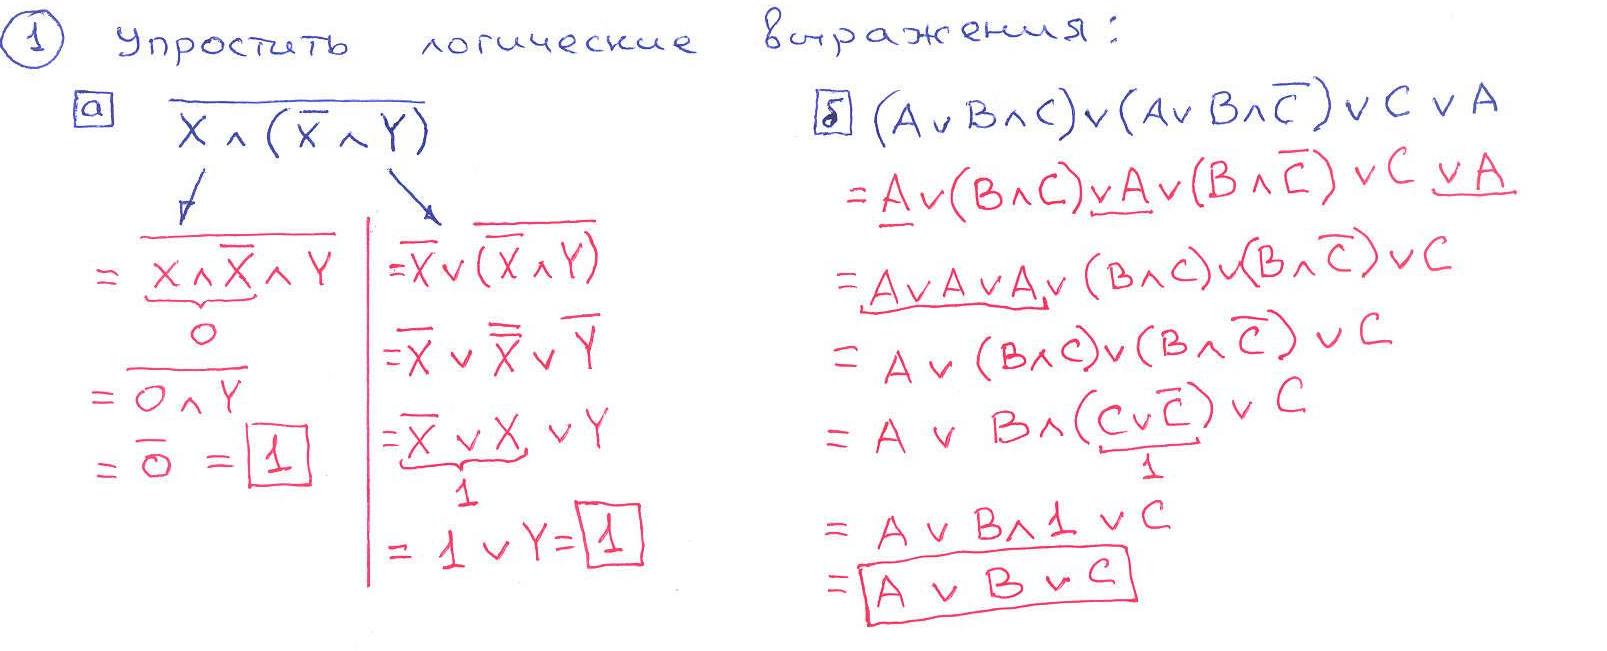 ① Упростить логические выражения:
а X̅ ̅∧̅ ̅(̅X̅̅ ̅∧̅ ̅Y̅)̅
= X̅ ̅∧̅ ̅X̅̅ ̅∧̅ ̅Y̅
0
= 0̅ ̅∧̅ ̅Y̅
= 0̅ = 1
= X̅ ∨ (̅X̅̅ ̅∧̅ ̅Y̅)̅
= X̅ ∨ X̅̅ ∨ Y̅
= X̅ ∨ X ∨ Y
1
= 1 ∨ Y = 1
б (A ∨ B ∧ C) ∨ (A ∨ B ∧ C̅) ∨ C ∨ A
= A ∨ (B ∧ C) ∨ A ∨ (B ∧ C̅) ∨ C ∨ A
= A ∨ A ∨ A ∨ (B ∧ C) ∨ (B ∧ C̅) ∨ C
= A ∨ (B ∧ C) ∨ (B ∧ C̅) ∨ C
= A ∨ B ∧ (C ∨ C̅) ∨ C
1
= A ∨ B ∧ 1 ∨ C
= A ∨ B ∨ C